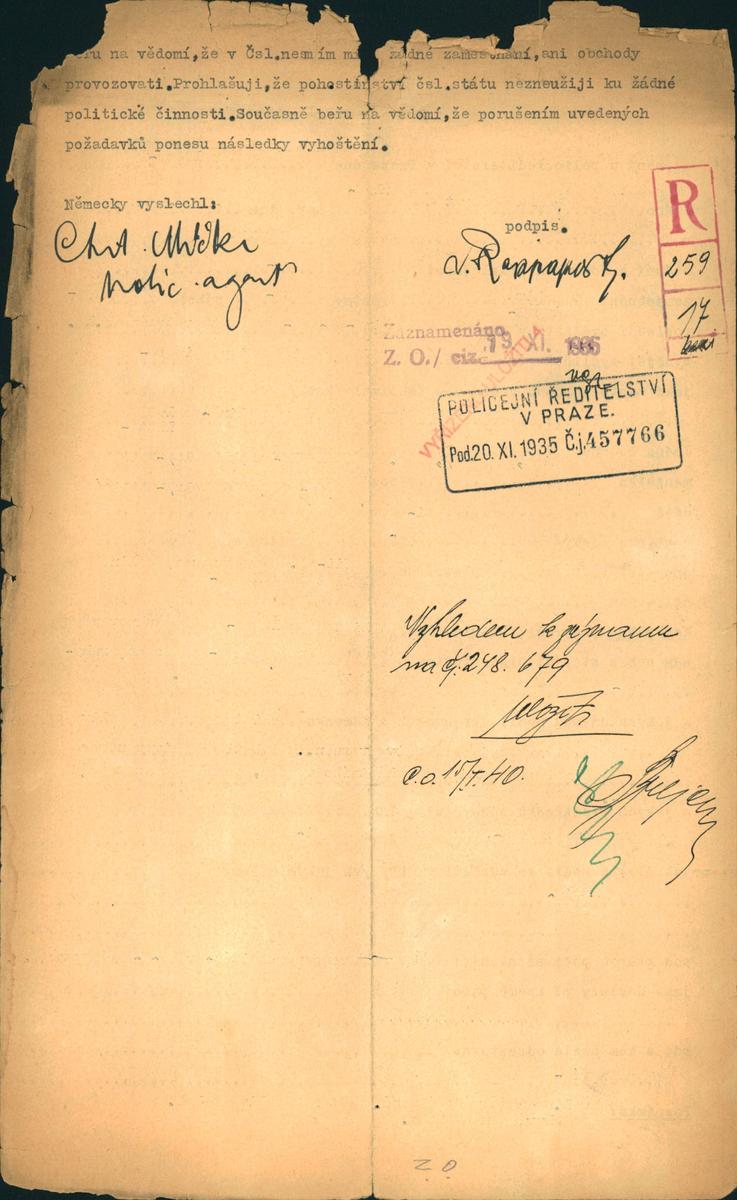 beru na vědomí,že v Čsl.nesmím mí žádné zaměstnání,ani obchody
provozovati.Prohlašuji,že pohostinství čsl.státu nezneužiji ku žádné
politické činnosti.Současně beru na vědomí,že porušením uvedených
požadavků ponesu následky vyhoštění.
Německy vyslechl:
podpis.
polic. agent
R
259
17
Zaznamenáno
Z. O./ ciz. 19 XI. 1935
POLICEJNÍ ŘEDITELSTVÍ
V PRAZE.
Pod.20. XI. 1935 Č.j.457766
Vzhledem k záznamu
na čj. 248. 679
uložiti
15/I. 40.
Z O